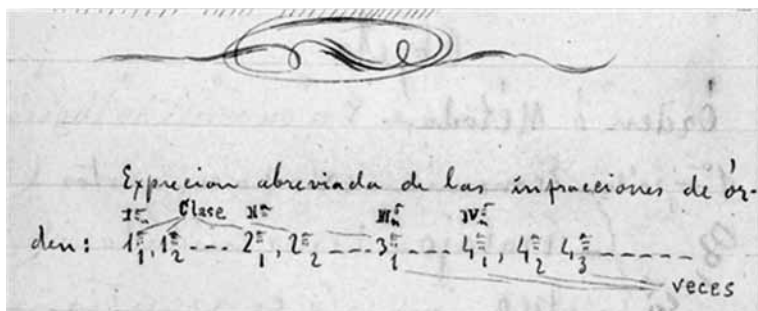 Exprecion abreviada de las infracciones de ór-
I.ª Clase II.ª III.ª IV.ª
den: 1ª₁, 1ª₂ --- 2ª₁, 2ª₂ ---- 3ª₁ ---- 4ª₁, 4ª₂ 4ª₃ ------
veces